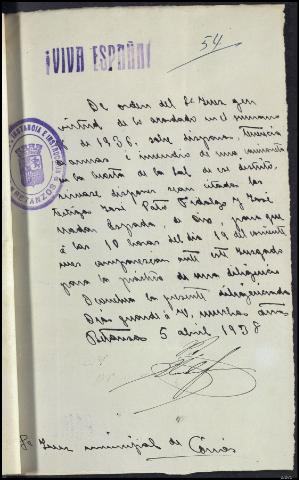 54
¡VIVA ESPAÑA!
De orden del Sr Juez y en
virtud de lo acordado en el sumario
de 1936, sobre disparos, tenencia
de armas e incendio de una camioneta
en la Cuesta de la Sal de ese distrito,
sírvase disponer sean citados los
testigos José Pato Fidalgo y José
Espada, de Oza, para que
á las 10 horas del día 19 del corriente
mes comparezcan ante este Juzgado
para la práctica de una diligencia
Devuelva la presente diligenciada
Dios guarde á V, muchos años
Betanzos 5 abril 1938
Sr Juez municipal de
INSTANCIA E INSTRUCCION
BETANZOS